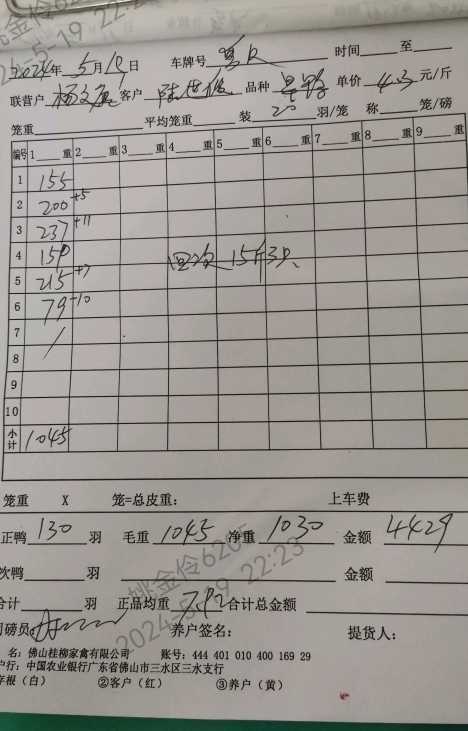 2024年5月19日 车牌号 时间 至
联营户 客户 品种 单价 4.3 元/斤
笼重 平均笼重 装 20 羽/笼 称 笼/磅
编号 1 重 2 重 3 重 4 重 5 重 6 重 7 重 8 重 9
1 155
2 200 +5
3 237 +11
4 159
5 215 +7
6 79 -10
7
8
9
10
小计 1045
笼重 X 笼=总皮重: 上车费
正鸭 130 羽 毛重 1045 净重 1030 金额 4429
次鸭 羽 金额
合计 羽 正品均重 7.92 合计总金额
司磅员: 养户签名: 提货人:
名: 佛山桂柳家禽有限公司 账号: 444 401 010 400 169 29
户行: 中国农业银行广东省佛山市三水区三水支行
存根（白） ②客户（红） ③养户（黄）
姚金伶6205
2024-5-19 22:23